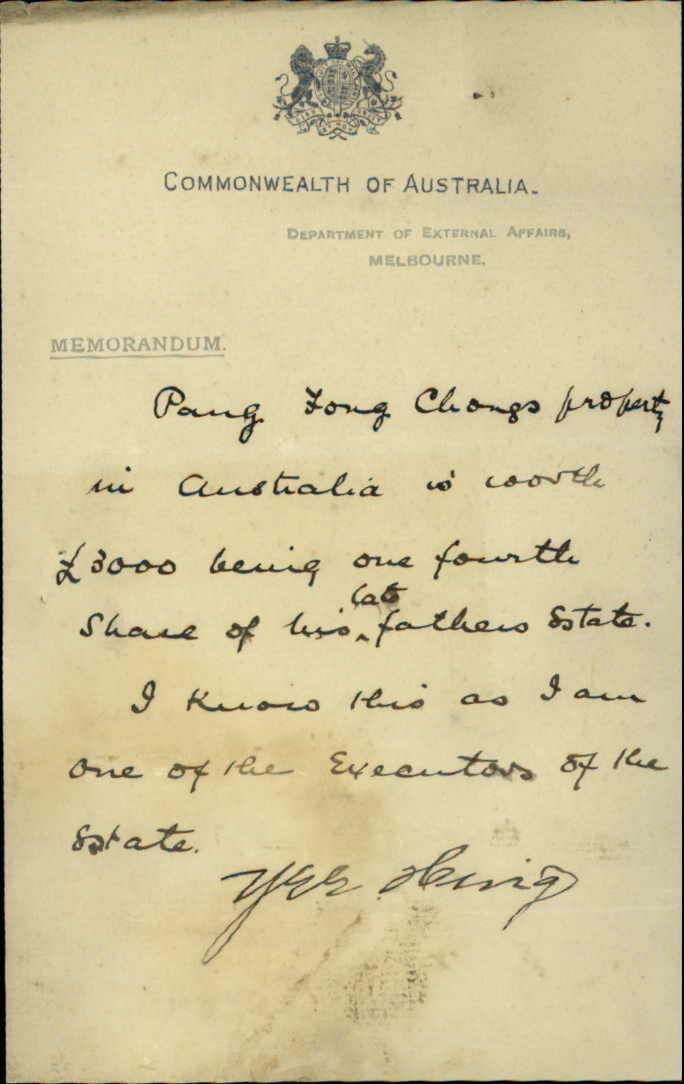 COMMONWEALTH OF AUSTRALIA.
DEPARTMENT OF EXTERNAL AFFAIRS,
MELBOURNE.
MEMORANDUM.
Pang Fong Chongs property
in Australia is worth
£3000 being one fourth
Share of his late fathers Estate.
I know this as I am
one of the Executors of the
Estate.
Yee Hing